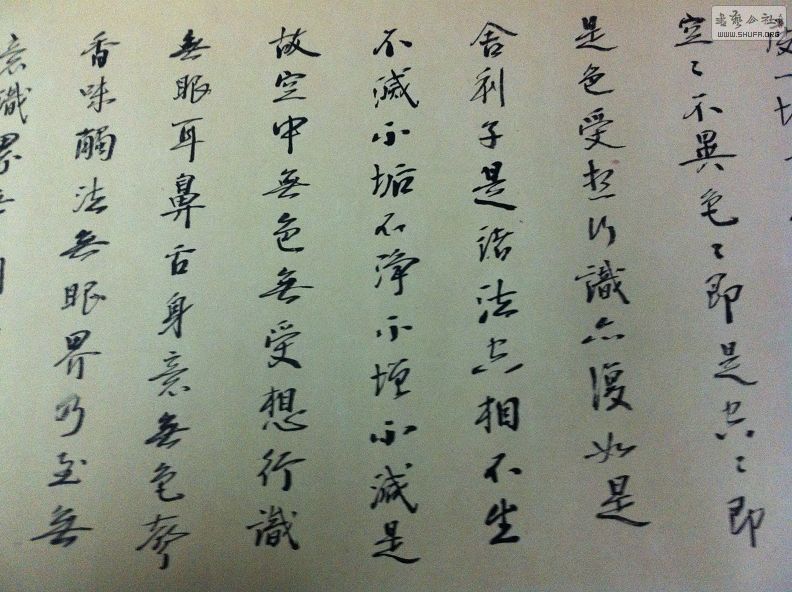 度一切
空〻不異色〻即是空〻即
是色受想行識亦復如是
舍利子是諸法空相不生
不滅不垢不淨不增不減是
故空中無色無受想行識
無眼耳鼻舌身意無色聲
香味觸法無眼界乃至無
意識界無
書藝公社
WWW.SHUFA.ORG